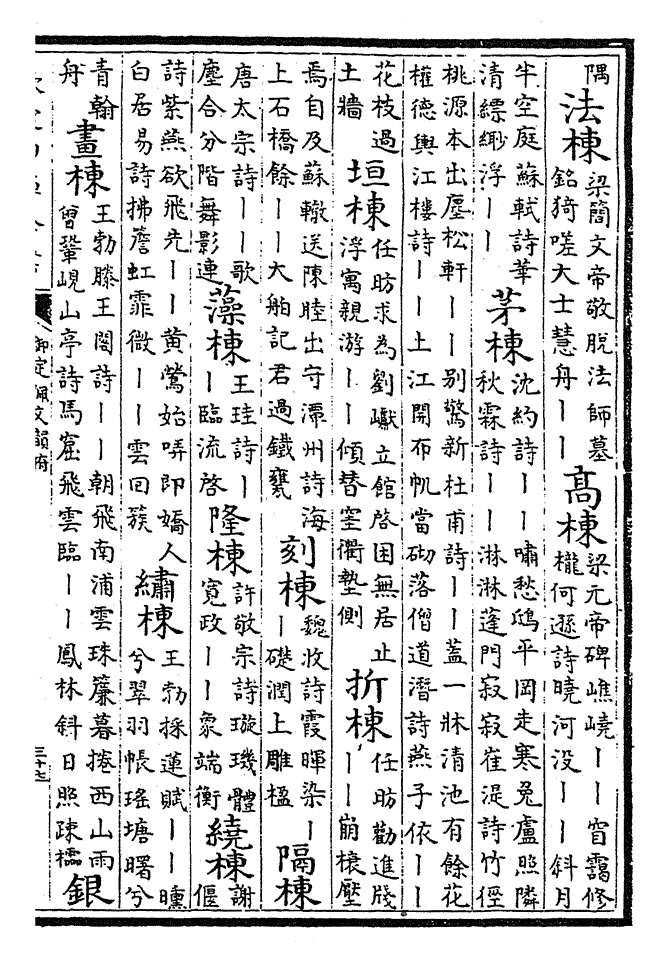 隅法棟梁簡文帝敬脱法師墓銘猗嗟大士慧舟丨丨高棟梁元帝碑嶕嶢丨丨窅靄修櫳何遜詩曉河没丨丨斜月
半空庭蘇軾詩華清縹緲浮丨丨茅棟沈約詩丨丨嘯愁鴟平岡走寒兔盧照隣秋霖詩丨丨淋淋蓬門寂寂崔湜詩竹徑
桃源本出塵松軒丨丨别驚新杜甫詩丨丨蓋一牀清池有餘花權德輿江樓詩丨丨土江開布帆當砌落僧道潛詩燕子依丨丨
花枝過土牆垣棟任昉求為劉瓛立館啓困無居止浮寓親游丨丨傾替室衢墊側折棟任昉勸進牋丨丨崩榱壓
焉自及蘇轍送陳睦出守潭州詩海上石橋餘丨丨大舶記君過鐵甕刻棟魏收詩霞暉染丨丨礎潤上雕楹隔棟
唐太宗詩丨丨歌塵合分階舞影連藻棟王珪詩丨丨臨流啓隆棟許敬宗詩璇璣體寬政丨丨象端衡繞棟謝偃
詩紫燕欲飛先丨丨黄鶯始哢即嬌人白居易詩拂簷虹霏微丨丨雲回簇繡棟王勃採蓮賦丨丨曛兮翠羽帳瑤塘曙兮
青翰舟畫棟王勃滕王閣詩丨丨朝飛南浦雲珠簾暮捲西山雨曾鞏峴山亭詩馬窟飛雲臨丨丨鳳林斜日照疎櫺銀
御定佩文韻府
三十七